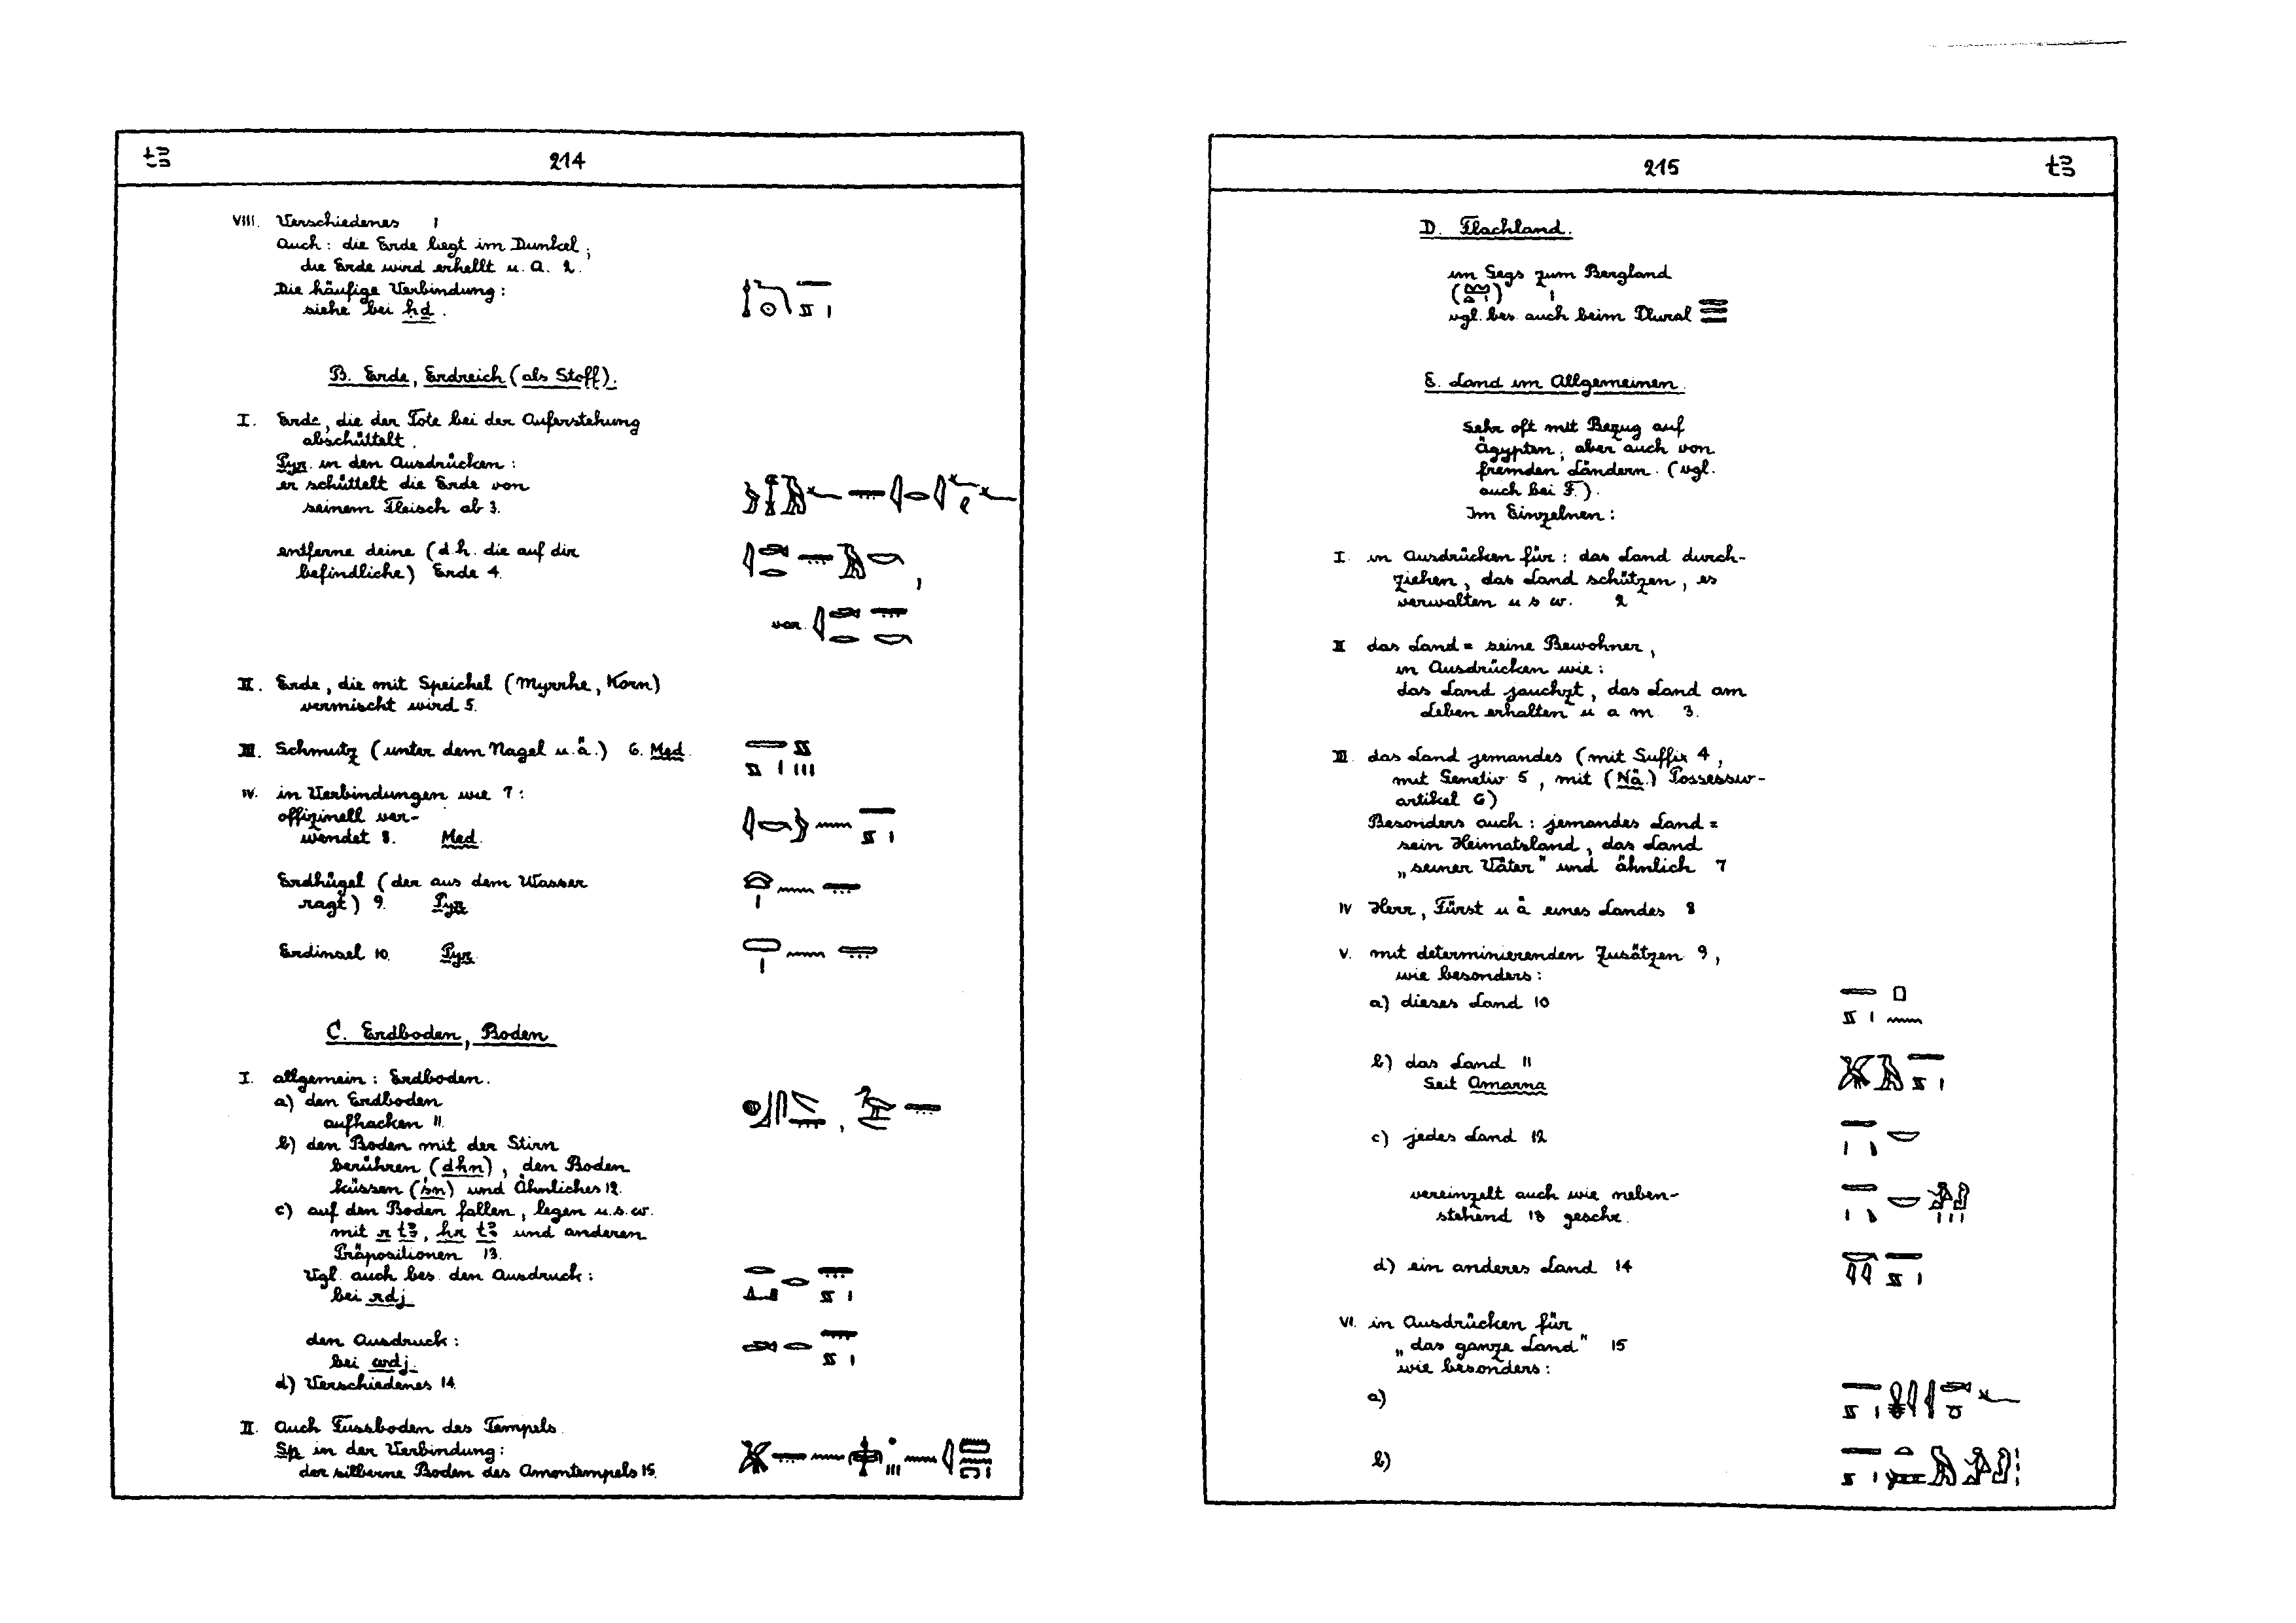 tꜣ 214
VIII. Verschiedenes 1
Auch: die Erde liegt im Dunkel;
die Erde wird erhellt u. a. 2.
Die häufige Verbindung:
siehe bei ḥḏ.
B. Erde, Erdreich (als Stoff).
I. Erde, die der Tote bei der Auferstehung
abschüttelt.
Pyr. in den Ausdrücken:
er schüttelt die Erde von
seinem Fleisch ab 3.
entferne deine (d.h. die auf dir
befindliche) Erde 4.
var.
II. Erde, die mit Speichel (Myrrhe, Korn)
vermischt wird 5.
III. Schmutz (unter dem Nagel u. ä.) 6. Med.
IV. in Verbindungen wie 7:
offizinell ver-
wendet 8. Med.
Erdhügel (der aus dem Wasser
ragt) 9. Pyr.
Erdinsel 10. Pyr.
C. Erdboden, Boden
I. allgemein: Erdboden.
a) den Erdboden
aufhacken 11.
b) den Boden mit der Stirn
berühren (dhn), den Boden
küssen (śn) und Ähnliches 12.
c) auf den Boden fallen, legen u.s.w.
mit r tꜣ, ḥr tꜣ und anderen
Präpositionen 13.
Vgl. auch bes. den Ausdruck:
bei rdj
den Ausdruck:
bei wdj.
d) Verschiedenes 14.
II. Auch Fussboden des Tempels.
Sp. in der Verbindung:
der silberne Boden des Amontempels 15.
215 tꜣ
D. Flachland.
im Gegs zum Bergland
( ) 1
vgl. bes. auch beim Plural
E. Land im Allgemeinen.
Sehr oft mit Bezug auf
Ägypten, aber auch von
fremden Ländern. (vgl.
auch bei F.).
Im Einzelnen:
I. in Ausdrücken für: das Land durch-
ziehen, das Land schützen, es
verwalten u s w. 2
II das Land = seine Bewohner,
in Ausdrücken wie:
das Land jauchzt, das Land am
Leben erhalten u a m 3.
III. das Land jemandes (mit Suffix 4,
mit Genetiv 5, mit (Nä.) Possessiv-
artikel 6)
Besonders auch: jemandes Land =
sein Heimatsland, das Land
„seiner Väter" und ähnlich 7
IV Herr, Fürst u ä eines Landes 8
V. mit determinierenden Zusätzen 9,
wie besonders:
a) dieses Land 10
b) das Land 11
Seit Amarna
c) jedes Land 12
vereinzelt auch wie neben-
stehend 13 geschr.
d) ein anderes Land 14
VI. in Ausdrücken für
„das ganze Land" 15
wie besonders:
a)
b)